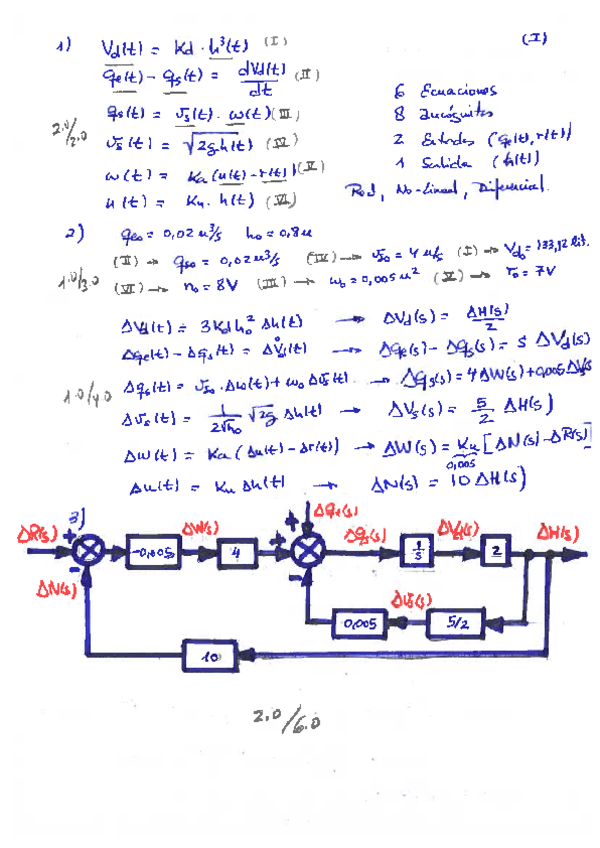 (I)
1) Vd(t) = Kd · h³(t) (I)
qe(t) - qs(t) = dVd(t)/dt (II)
qs(t) = vs(t) · ω(t) (III)
vs(t) = √2g h(t) (IV)
ω(t) = Ka (u(t) - r(t)) (V)
u(t) = Ku · h(t) (VI)
2.0/2.0
6 Ecuaciones
8 Incógnitas
2 Entradas (qe(t), r(t))
1 Salida (h(t))
Real, No-Lineal, Diferencial.
2) qeo = 0,02 m³/s ho = 0,8m
(II) → qso = 0,02 m³/s (IV) → vso = 4 m/s (I) → Vdo = 133,12 lit.
(VI) → no = 8V (III) → wo = 0,005 m² (V) → ro = 7V
1.0/3.0
ΔVd(t) = 3Kd ho² Δh(t) → ΔVd(s) = ΔH(s)/2
Δqe(t) - Δqs(t) = ΔV̇d(t) → Δqe(s) - Δqs(s) = s ΔVd(s)
Δqs(t) = vso · Δω(t) + ωo Δvs(t) → Δqs(s) = 4ΔW(s) + 0,005 ΔVs
1.0/4.0
Δvs(t) = 1/2√ho √2g Δh(t) → ΔVs(s) = 5/2 ΔH(s)
Δω(t) = Ka (Δu(t) - Δr(t)) → ΔW(s) = Ka [ΔN(s) - ΔR(s)]
0,005
Δu(t) = Ku Δh(t) → ΔN(s) = 10 ΔH(s)
3)
ΔR(s) + -0,005 ΔW(s) 4 + + ΔQe(s) ΔQ(s) 1/s ΔVd(s) 2 ΔH(s)
- ΔN(s) - 0,005 ΔVs(s) 5/2
10
2.0/6.0